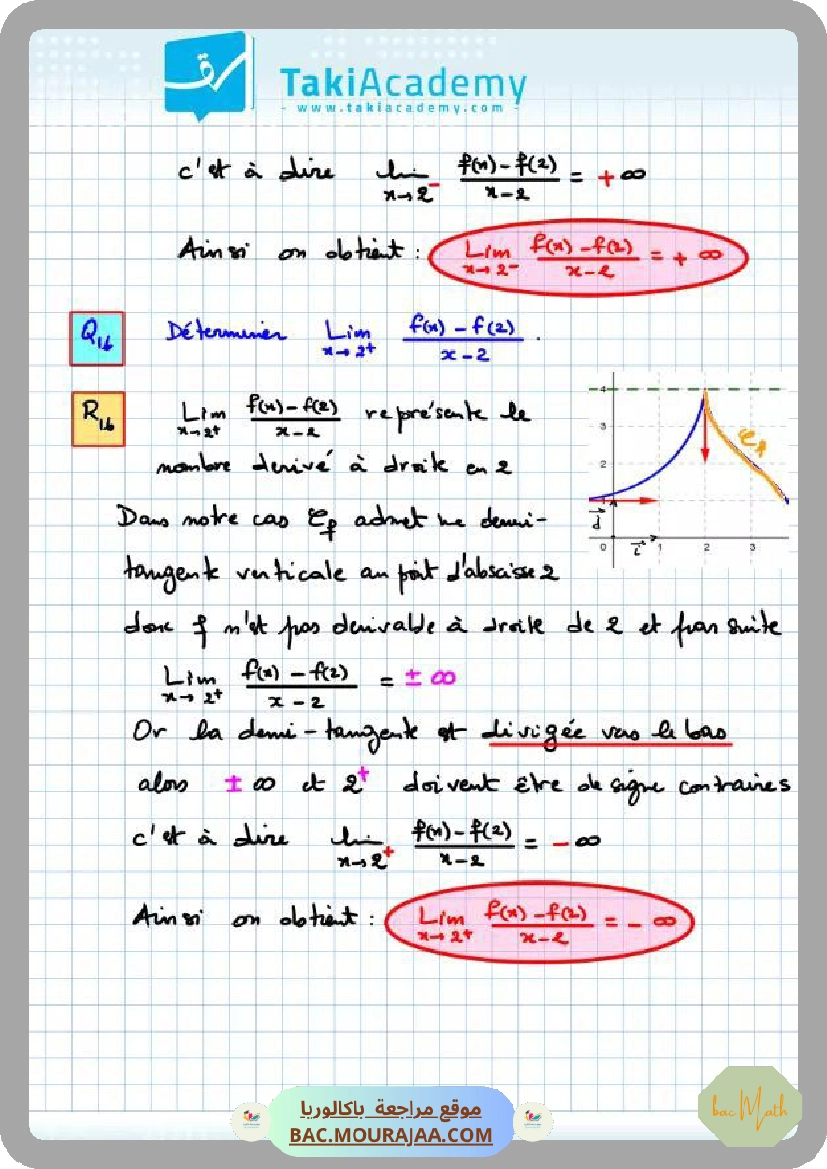 TakiAcademy
- www.takiacademy.com -
c'est à dire lim x→2⁻ (f(x)-f(2))/(x-2) = +∞
Ainsi on obtient : Lim x→2⁻ (f(x)-f(2))/(x-2) = +∞
Q16 Déterminer Lim x→2⁺ (f(x)-f(2))/(x-2) .
R16 Lim x→2⁺ (f(x)-f(2))/(x-2) représente le
nombre derivé à droite en 2
Dans notre cas Cf admet une demi-
tangente verticale au point d'abscisse 2
donc f n'est pas derivable à droite de 2 et par suite
Lim x→2⁺ (f(x)-f(2))/(x-2) = ±∞
Or la demi-tangente est dirigée vers le bas
alors ±∞ et 2⁺ doivent être de signe contraires
c'est à dire lim x→2⁺ (f(x)-f(2))/(x-2) = -∞
Ainsi on obtient : Lim x→2⁺ (f(x)-f(2))/(x-2) = -∞
4
3
Cf
2
1
j
0 i 1 2 3
موقع مراجعة باكالوريا
BAC.MOURAJAA.COM
bac Math